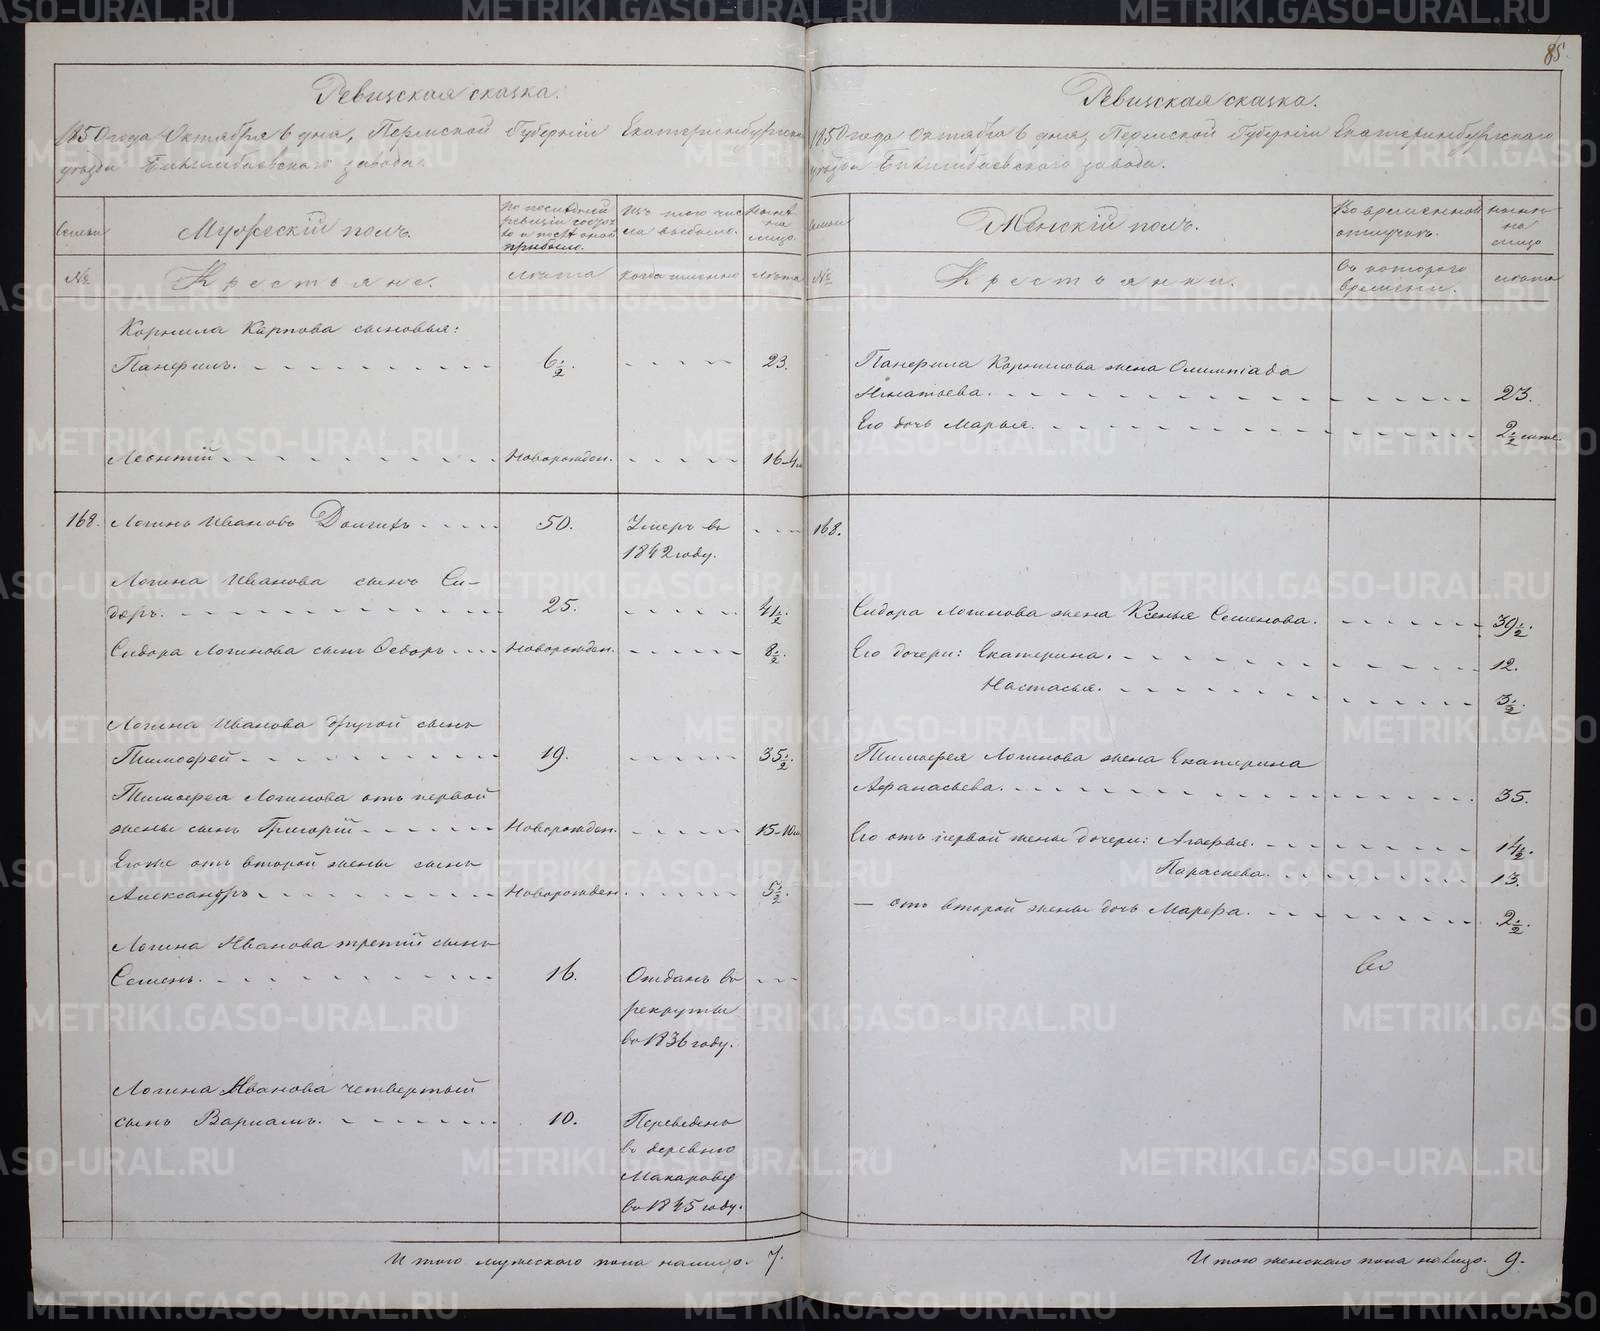 85.
Ревизская сказка.
1850 года Октября 6 дня, Пермской Губерніи Екатеринбургскаго
уѣзда Билимбаевскаго завода.
Семьи
Мужескій полъ.
По послѣдней
ревизіи состоя-
ло и послѣ оной
прибыло.
Изъ того чис-
ла выбыло.
Нынѣ
на
лицо.
№
Крестьяне.
Лѣта
когда именно
лѣта
Корнила Карпова сыновья:
Панфилъ. 6 1/2 23.
Леонтій Новорожден. 16-4м
168. Логинъ Ивановъ Долгихъ 50. Умеръ въ
1842 году.
Логина Иванова сынъ Си-
доръ. 25. 41 1/2.
Сидора Логинова сынъ Ѳедоръ Новорожден. 8 1/2.
Логина Иванова другой сынъ
Тимоѳей 19. 35 1/2.
Тимоѳея Логинова отъ первой
жены сынъ Григорій Новорожден. 15-10м
Его же отъ второй жены сынъ
Александръ Новорожден. 5 1/2.
Логина Иванова третій сынъ
Семенъ. 16. Отданъ въ
рекруты
въ 1836 году.
Логина Иванова четвертый
сынъ Варламъ. 10. Переведенъ
въ деревню
Макарову
въ 1845 году.
Итого мужескаго пола налицо. 7.
Ревизская сказка.
1850 года Октября 6 дня, Пермской Губерніи Екатеринбургскаго
уѣзда Билимбаевскаго завода.
Семьи
Женскій полъ.
Во временной
отлучкѣ.
Нынѣ
на
лицо
№
Крестьянки.
Съ котораго
времени.
лѣта
Панфила Корнилова жена Олимпіада
Игнатьева. 23.
Его дочь Марья. 2 1/2
168.
Сидора Логинова жена Ксенья Семенова. 39 1/2.
Его дочери: Екатерина. 12.
Настасья. 3 1/2.
Тимоѳея Логинова жена Екатерина
Аѳанасьева. 35.
Его отъ первой жены дочери: Агафья. 14 1/2.
Парасковья. 13.
— отъ второй жены дочь Марфа. 2 1/2.
Итого женскаго пола налицо. 9.
METRIKI.GASO-URAL.RU